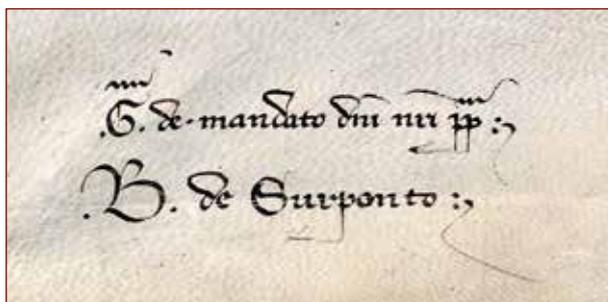 .G. de mandato dni nri pp :
.B. de Surponto :